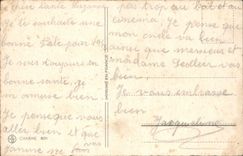 Chère tante Suzanne
Je te souhaite une
bonne fête pour
Je suis toujours en
bonne santé, je
m amuse bien
Je pense que vous
allez bien et que
pas trop au bal et au
cinéma. Je pense que
mon oncle va bien
ainsi que monsieur et
madame
bien.
Je vous embrasse
bien
Jacqueline
IMPRIMÉ EN FRANCE